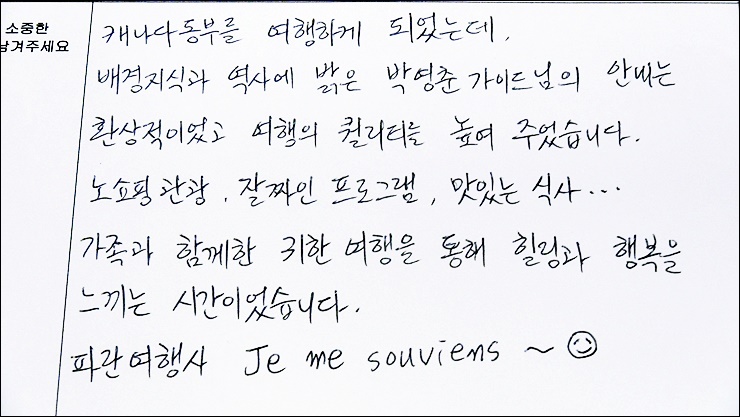 소중한
남겨주세요
캐나다 동부를 여행하게 되었는데,
배경지식과 역사에 밝은 박영춘 가이드님의 안내는
환상적이었고 여행의 퀄리티를 높여 주었습니다.
노쇼핑 관광, 잘짜인 프로그램, 맛있는 식사...
가족과 함께한 귀한 여행을 통해 힐링과 행복을
느끼는 시간이었습니다.
파란여행사 Je me souviens ~ ☺